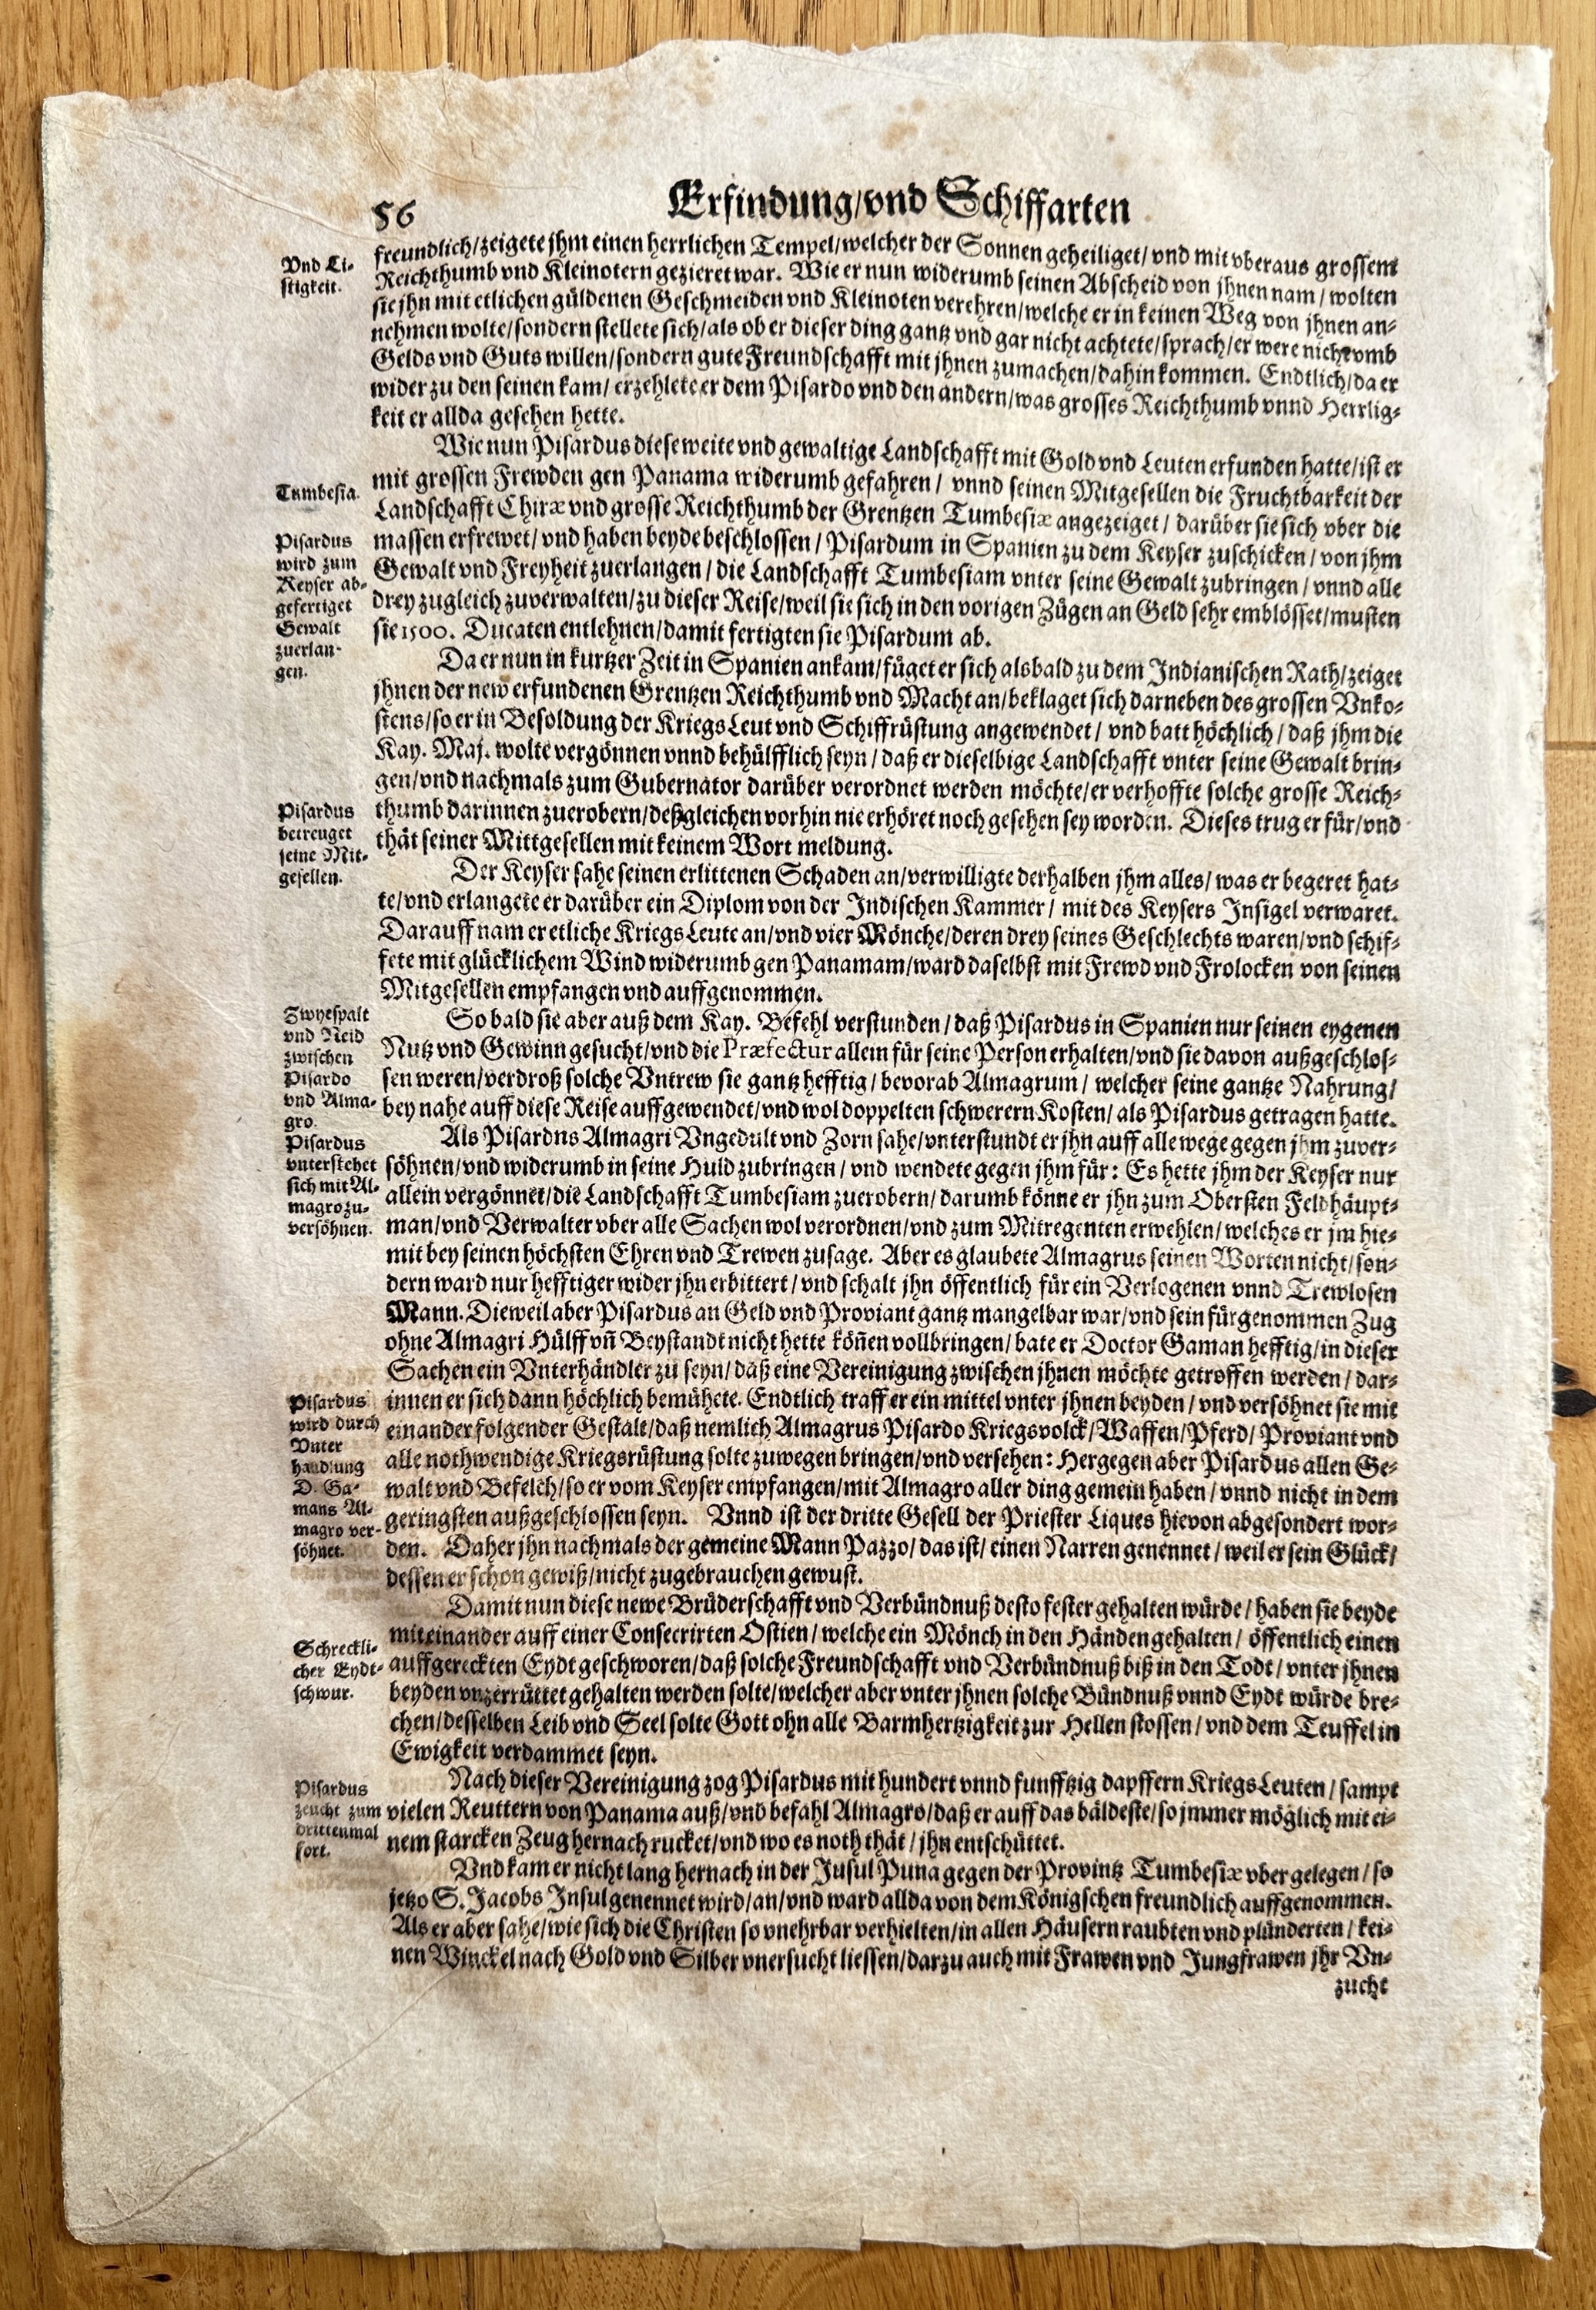 56
Erfindung/vnd Schiffarten
Vnd Li-
stigkeit.
freundlich/zeigete jhm einen herrlichen Tempel/welcher der Sonnen geheiliget/vnd mit vberaus grossem
Reichthumb vnd Kleinotern gezieret war. Wie er nun widerumb seinen Abscheid von jhnen nam/wolten
sie jhn mit etlichen güldenen Geschmeiden vnd Kleinoten verehren/welche er in keinen Weg von jhnen an-
nehmen wolte/sondern stellete sich/als ob er dieser ding gantz vnd gar nicht achtete/sprach/er were nicht vmb
Gelds vnd Guts willen/sondern gute Freundschafft mit jhnen zumachen/dahin kommen. Endtlich/da er
wider zu den seinen kam/erzehlete er dem Pisardo vnd den andern/was grosses Reichthumb vnnd Herrlig-
keit er allda gesehen hette.
Wie nun Pisardus diese weite vnd gewaltige Landschafft mit Gold vnd Leuten erfunden hatte/ist er
Tumbesia.
mit grossen Frewden gen Panama widerumb gefahren/vnnd seinen Mitgesellen die Fruchtbarkeit der
Landschafft Chiræ vnd grosse Reichthumb der Grentzen Tumbesiæ angezeiget/darüber sie sich vber die
Pisardus
wird zum
Keyser ab-
gefertiget
Gewalt
zuerlan-
gen.
massen erfrewet/vnd haben beyde beschlossen/Pisardum in Spanien zu dem Keyser zuschicken/von jhm
Gewalt vnd Freyheit zuerlangen/die Landschafft Tumbesiam vnter seine Gewalt zubringen/vnnd alle
drey zugleich zuverwalten/zu dieser Reise/weil sie sich in den vorigen Zügen an Geld sehr emblösset/musten
sie 1500. Ducaten entlehnen/damit fertigten sie Pisardum ab.
Da er nun in kurtzer Zeit in Spanien ankam/füget er sich alsbald zu dem Indianischen Rath/zeiget
jhnen der new erfundenen Grentzen Reichthumb vnd Macht an/beklaget sich darneben des grossen Vnko-
stens/so er in Besoldung der Kriegs Leut vnd Schiffrüstung angewendet/vnd batt höchlich/daß jhm die
Kay. Maj. wolte vergönnen vnnd behülfflich seyn/daß er dieselbige Landschafft vnter seine Gewalt brin-
gen/vnd nachmals zum Gubernator darüber verordnet werden möchte/er verhoffte solche grosse Reich-
Pisardus
betreuget
seine Mit-
gesellen.
thumb darinnen zuerobern/deßgleichen vorhin nie erhöret noch gesehen sey worden. Dieses trug er für/vnd
thät seiner Mittgesellen mit keinem Wort meldung.
Der Keyser sahe seinen erlittenen Schaden an/verwilligte derhalben jhm alles/was er begeret hat-
te/vnd erlangete er darüber ein Diplom von der Indischen Kammer/mit des Keysers Insigel verwaret.
Darauff nam er etliche Kriegs Leute an/vnd vier Mönche/deren drey seines Geschlechts waren/vnd schif-
fete mit glücklichem Wind widerumb gen Panamam/ward daselbst mit Frewd vnd Frolocken von seinen
Mitgesellen empfangen vnd auffgenommen.
Zwyespalt
vnd Neid
zwischen
Pisardo
vnd Alma-
gro.
So bald sie aber auß dem Kay. Befehl verstunden/daß Pisardus in Spanien nur seinen eygenen
Nutz vnd Gewinn gesucht/vnd die Præfectur allein für seine Person erhalten/vnd sie davon außgeschlos-
sen weren/verdroß solche Vntrew sie gantz hefftig/bevorab Almagrum/welcher seine gantze Nahrung/
bey nahe auff diese Reise auffgewendet/vnd wol doppelten schwerern Kosten/als Pisardus getragen hatte.
Pisardus
vnterstehet
sich mit Al-
magro zu-
versöhnen.
Als Pisardns Almagri Vngedult vnd Zorn sahe/vnterstundt er jhn auff alle wege gegen jhm zuver-
söhnen/vnd widerumb in seine Huld zubringen/vnd wendete gegen jhm für: Es hette jhm der Keyser nur
allein vergönnet/die Landschafft Tumbesiam zuerobern/darumb könne er jhn zum Obersten Feldhäupt-
man/vnd Verwalter vber alle Sachen wol verordnen/vnd zum Mitregenten erwehlen/welches er jm hie-
mit bey seinen höchsten Ehren vnd Trewen zusage. Aber es glaubete Almagrus seinen Worten nicht/son-
dern ward nur hefftiger wider jhn erbittert/vnd schalt jhn öffentlich für ein Verlogenen vnnd Trewlosen
Mann. Dieweil aber Pisardus an Geld vnd Proviant gantz mangelbar war/vnd sein fürgenommen Zug
ohne Almagri Hülff vñ Beystandt nicht hette köñen vollbringen/bate er Doctor Gaman hefftig/in dieser
Sachen ein Vnterhändler zu seyn/daß eine Vereinigung zwischen jhnen möchte getroffen werden/dar-
Pisardus
wird durch
Vnter
handlung
D. Ga-
mans Al-
magro ver-
söhnet.
innen er sich dann höchlich bemühete. Endtlich traff er ein mittel vnter jhnen beyden/vnd versöhnet sie mit
einander folgender Gestalt/daß nemlich Almagrus Pisardo Kriegsvolck/Waffen/Pferd/Proviant vnd
alle nothwendige Kriegsrüstung solte zuwegen bringen/vnd versehen: Hergegen aber Pisardus allen Ge-
walt vnd Befelch/so er vom Keyser empfangen/mit Almagro aller ding gemein haben/vnnd nicht in dem
geringsten außgeschlossen seyn. Vnnd ist der dritte Gesell der Priester Liques hievon abgesondert wor-
den. Daher jhn nachmals der gemeine Mann Pazzo/das ist/einen Narren genennet/weil er sein Glück/
dessen er schon gewiß/nicht zugebrauchen gewust.
Damit nun diese newe Brüderschafft vnd Verbündnuß desto fester gehalten würde/haben sie beyde
Schreckli-
cher Eydt-
schwur.
mit einander auff einer Consecrirten Ostien/welche ein Mönch in den Händen gehalten/öffentlich einen
auffgereckten Eydt geschworen/daß solche Freundschafft vnd Verbündnuß biß in den Todt/vnter jhnen
beyden vnzerrüttet gehalten werden solte/welcher aber vnter jhnen solche Bündnuß vnnd Eydt würde bre-
chen/desselben Leib vnd Seel solte Gott ohn alle Barmhertzigkeit zur Hellen stossen/vnd dem Teuffel in
Ewigkeit verdammet seyn.
Pisardus
zeucht zum
drittenmal
fort.
Nach dieser Vereinigung zog Pisardus mit hundert vnnd funfftzig dapffern Kriegs Leuten/sampt
vielen Reuttern von Panama auß/vnd befahl Almagro/daß er auff das bäldeste/so jmmer möglich mit ei-
nem starcken Zeug hernach rucket/vnd wo es noth thät/jhn entschüttet.
Vnd kam er nicht lang hernach in der Jusul Puna gegen der Provintz Tumbesiæ vber gelegen/so
jetzo S. Jacobs Insul genennet wird/an/vnd ward allda von dem Königschen freundlich auffgenommen.
Als er aber sahe/wie sich die Christen so vnehrbar verhielten/in allen Häusern raubten vnd plünderten/kei-
nen Winckel nach Gold vnd Silber vnersucht liessen/darzu auch mit Frawen vnd Jungfrawen jhr Vn-
zucht